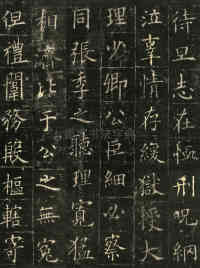 待旦志在恤刑呪網
泣辜情存緩獄授大
理少卿公巨細必察
同張季之聽理寬猛
相濟比于公之無冤
但禮闈務殷樞轄寄